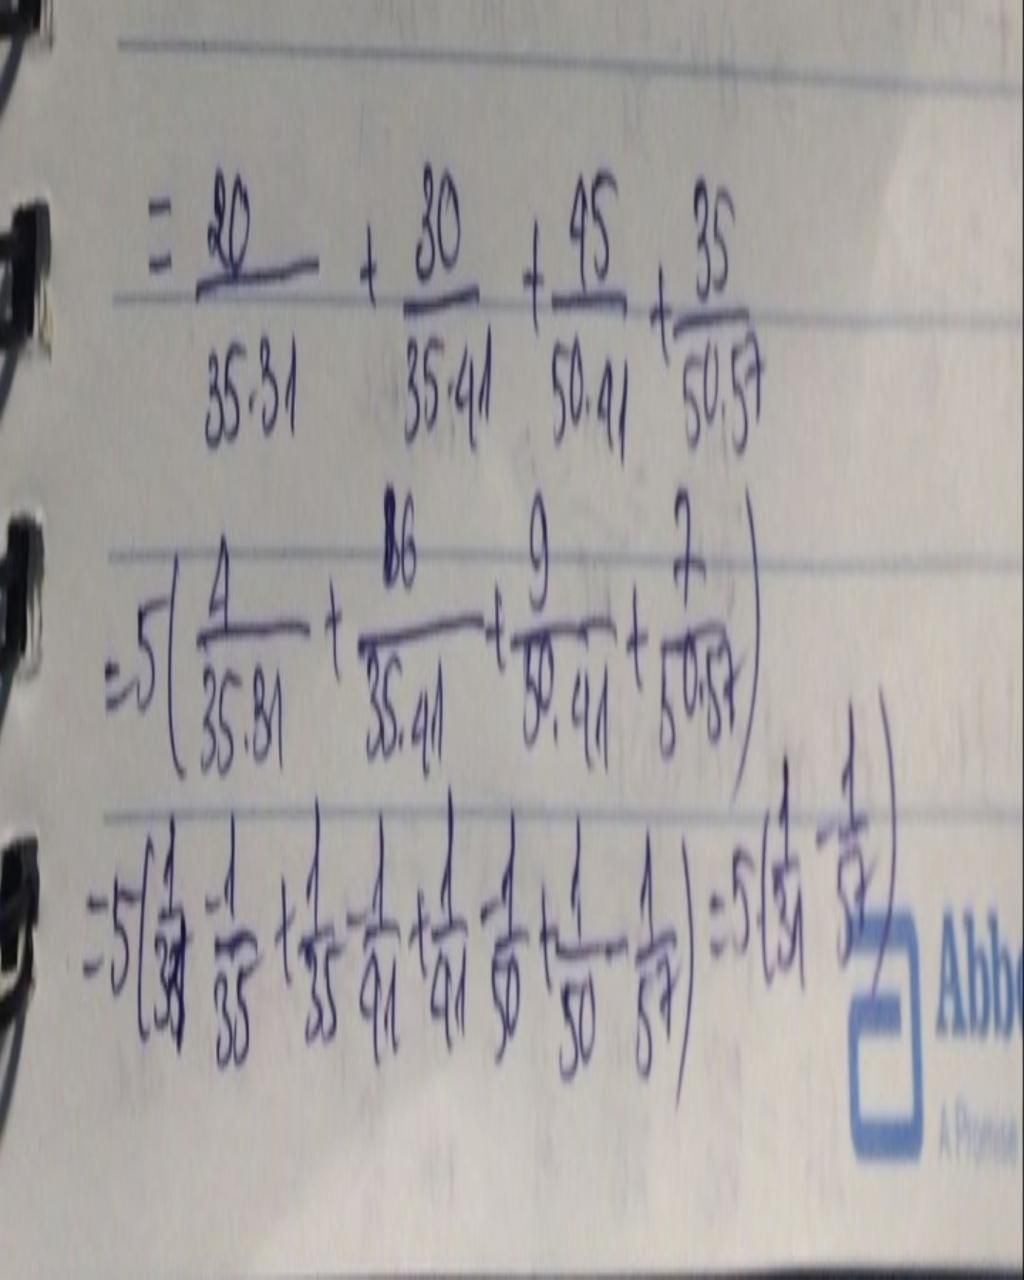 = 20/35.31 + 30/35.41 + 45/50.41 + 35/50.57
=5(4/35.31 + 6/35.41 + 9/50.41 + 7/50.57)
=5(1/31 - 1/35 + 1/35 - 1/41 + 1/41 - 1/50 + 1/50 - 1/57) = 5.(1/31 - 1/57)
Abbo
A Promise